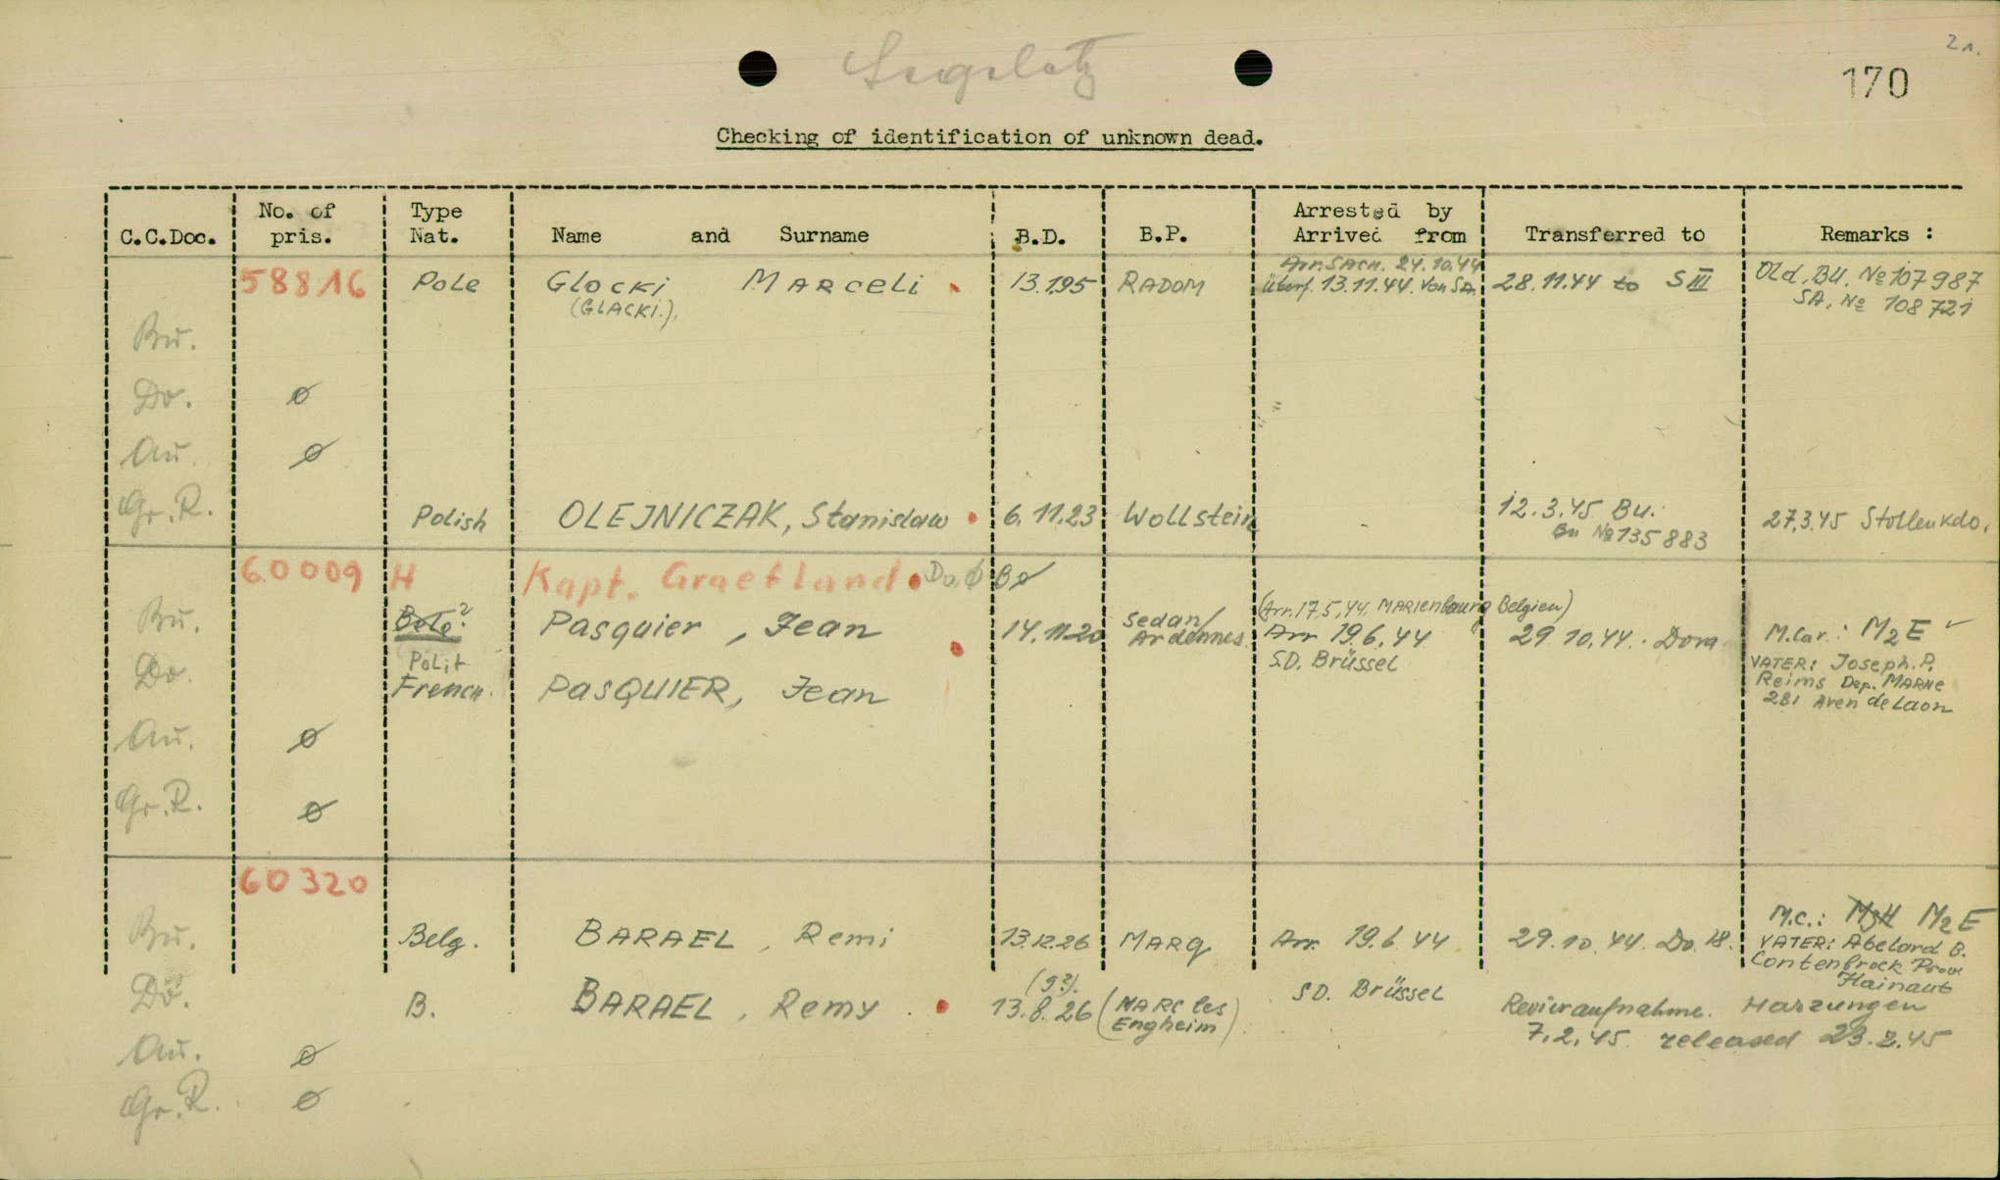 2n.
Segeletz
170
Checking of identification of unknown dead.
C.C.Doc. No. of pris. Type Nat. Name and Surname B.D. B.P. Arrested by Arrived from Transferred to Remarks :
58816 Pole Glocki MARceli 13.1.95 RADOM Arr. SACH. 24.10.44 28.11.44 to S III Old. BU. № 107987
(GLACKI.) überf. 13.11.44. von SA. SA. № 108721
Bu.
Do. ø
Au. ø
Gr.R. Polish OLEJNICZAK, Stanislaw 6.11.23 Wollstein 12.3.45 Bu. 27.3.45 Stollenkdo.
Bu № 135883
60009 H Kapt. Graefland Do. ø Bø
(Arr. 17.5.44. MARIENbourg Belgien)
Bu. Pasquier, Jean 14.11.20 Sedan/ Ardennes Arr 19.6.44 29.10.44. Dora M.Car.: M2E
S.D. Brüssel
Do. Polit French. PASQUIER, Jean VATER: Joseph. P.
Reims Dep. MARNe
281 Aven de Laon
Au. ø
Gr.R. ø
60320
Bu. Belg. BARAEL, Remi 13.12.26 MARQ Arr. 19.6.44 29.10.44. Do. 18. M.C.: M3H M2E
VATER: Abelard B.
Contenbrock Prov
Hainaut
Do. B. BARAEL, Remy 13.8.26 (MARC les Engheim) S.D. Brüssel Revieraufnahme. Harzungen
7.2.45. released 23.2.45
Au. ø
Gr.R. ø